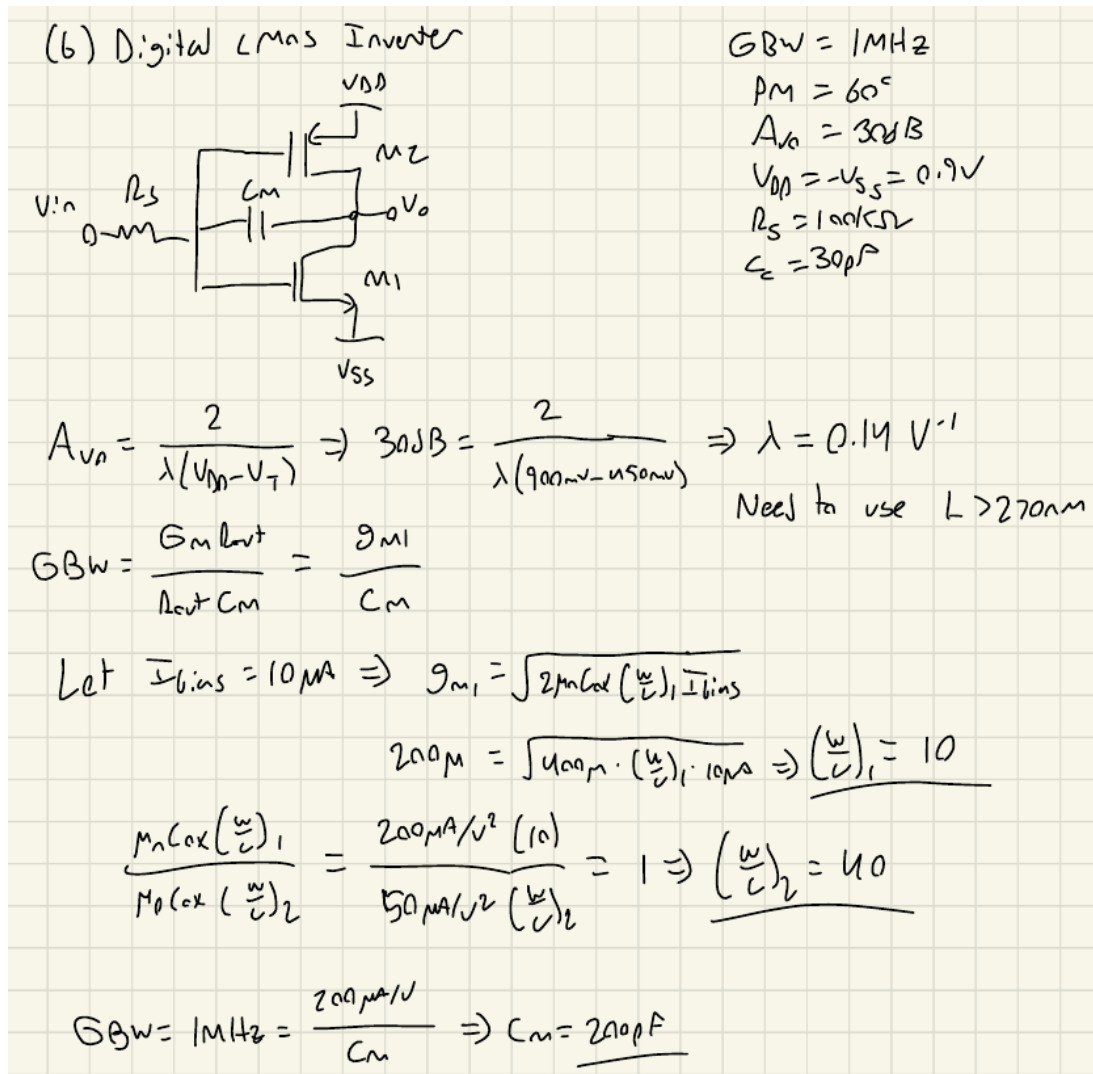 (6) Digital CMOS Inverter
GBW = 1MHz
PM = 60°
Av0 = 30dB
VDD = -VSS = 0.9V
RS = 100kΩ
CC = 30pF
VDD
M2
CM
Vin
RS
Vo
M1
VSS
Av0 = 2 / λ(VDD-VT) ⇒ 30dB = 2 / λ(900mV-450mV) ⇒ λ = 0.14 V⁻¹
Need to use L > 270nm
GBW = Gm Rout / Rout CM = gm1 / CM
Let Ibias = 10μA ⇒ gm1 = √(2μnCox (W/L)1 Ibias)
200μ = √(400μ · (W/L)1 · 10μA) ⇒ (W/L)1 = 10
μnCox (W/L)1 / μpCox (W/L)2 = 200μA/V² (10) / 50μA/V² (W/L)2 = 1 ⇒ (W/L)2 = 40
GBW = 1MHz = 200μA/V / CM ⇒ CM = 200pF